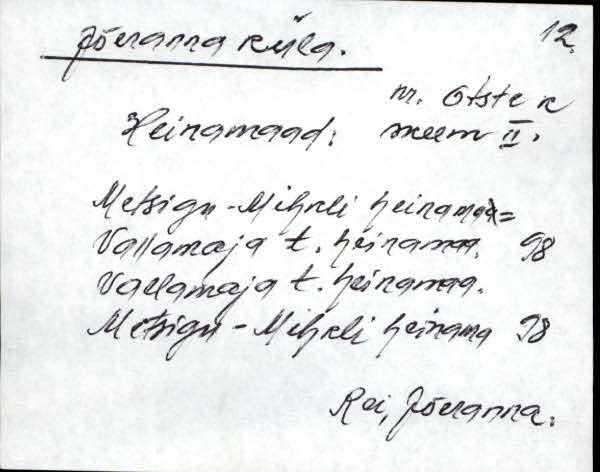 Jõeranna küla.
12.
nr. Otste k
Heinamaad: skeem II.
Metsigu-Mihkli heinamaa=
Vallamaja t. heinamaa. 98
Vallamaja t. heinamaa.
Metsigu-Mihkli heinama 98
Rei, Jõeranna.